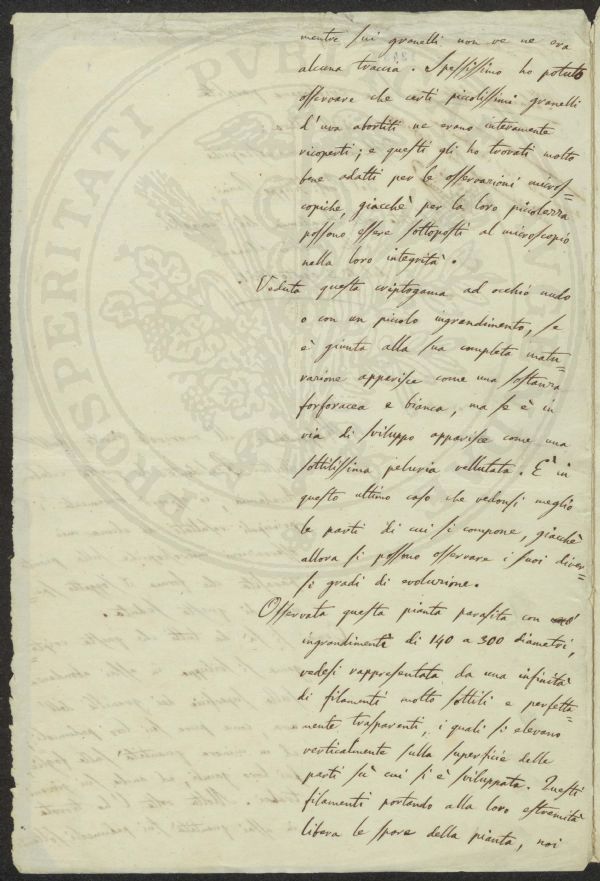 mentre sui granelli non ve ne era
alcuna traccia. Spessissimo ho potuto
osservare che certi piccolissimi granelli
d'uva abortiti ne erano interamente
ricoperti; e questi gli ho trovati molto
bene adatti per le osservazioni micros=
copiche, giacchè per la loro picolezza
possono essere sottoposti al microscopio
nella loro integrità.
Veduta questa criptogama ad occhio nudo
o con un piccolo ingrandimento, se
è giunta alla sua completa matu=
razione apparisce come una sostanza
forforacea e bianca, ma se è in
via di sviluppo apparisce come una
sottilissima peluria vellutata. È in
questo ultimo caso che vedonsi meglio
le parti di cui si compone, giacchè
allora si possono osservare i suoi diver=
si gradi di evoluzione.
Osservata questa pianta parasita con
ingrandimenti di 140 a 300 diametri,
vedesi rappresentata da una infinità
di filamenti molto sottili e perfetta=
mente trasparenti, i quali si elevano
verticalmente sulla superficie delle
parti sù cui si è sviluppata. Questi
filamenti portando alla loro estremità
libera le spore della pianta, noi
PROSPERITATI PVBLICAE